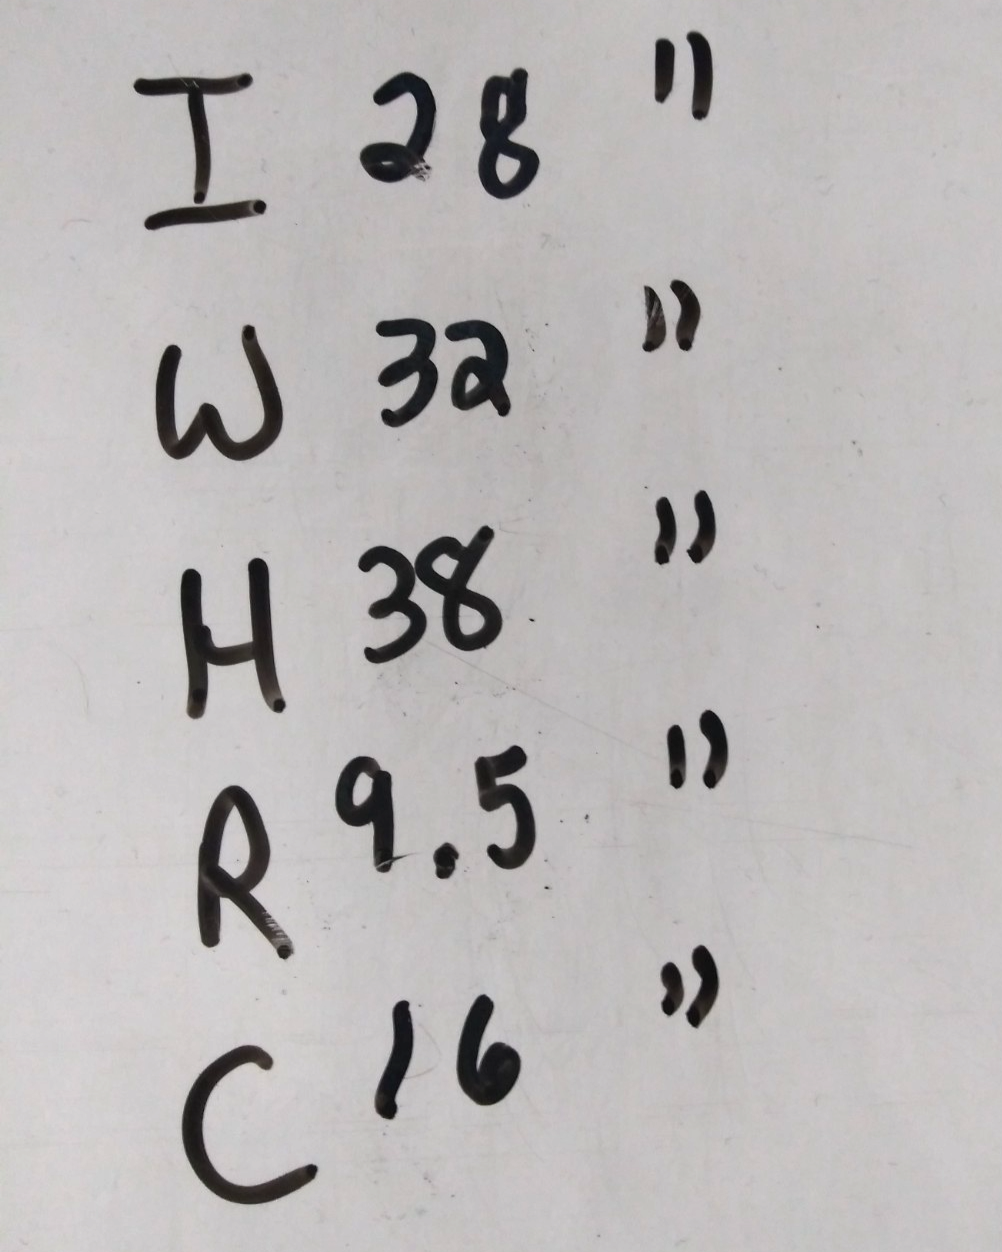 I 28 "
W 32 "
H 38 "
R 9.5 "
C 16 "